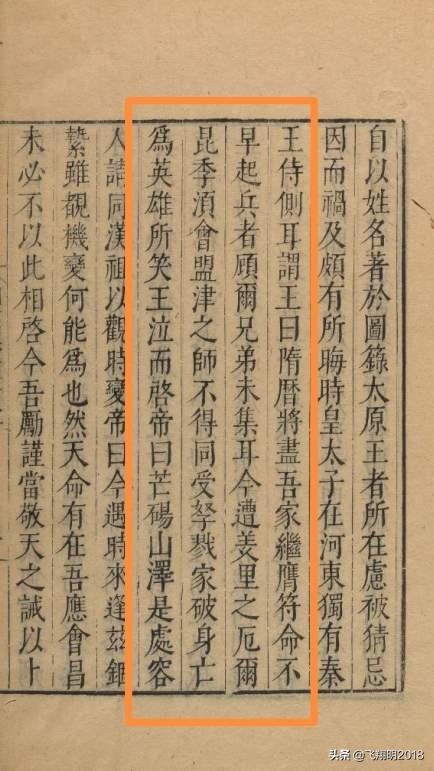 自以姓名著於圖籙太原王者所在慮被猜忌
因而禍及頗有所晦時皇太子在河東獨有秦
王侍側耳謂王曰隋曆將盡吾家繼膺符命不
早起兵者顧爾兄弟未集耳今遭姜里之厄爾
昆季湏會盟津之師不得同受孥戮家破身亡
爲英雄所笑王泣而啓帝曰芒碭山澤是處容
人請同漢祖以觀時變帝曰今遇時來逢兹錮
縶雖覩機變何能爲也然天命有在吾應會昌
未必不以此相啓今吾勵謹當敬天之誡以卜
头条 @飞翔明2018